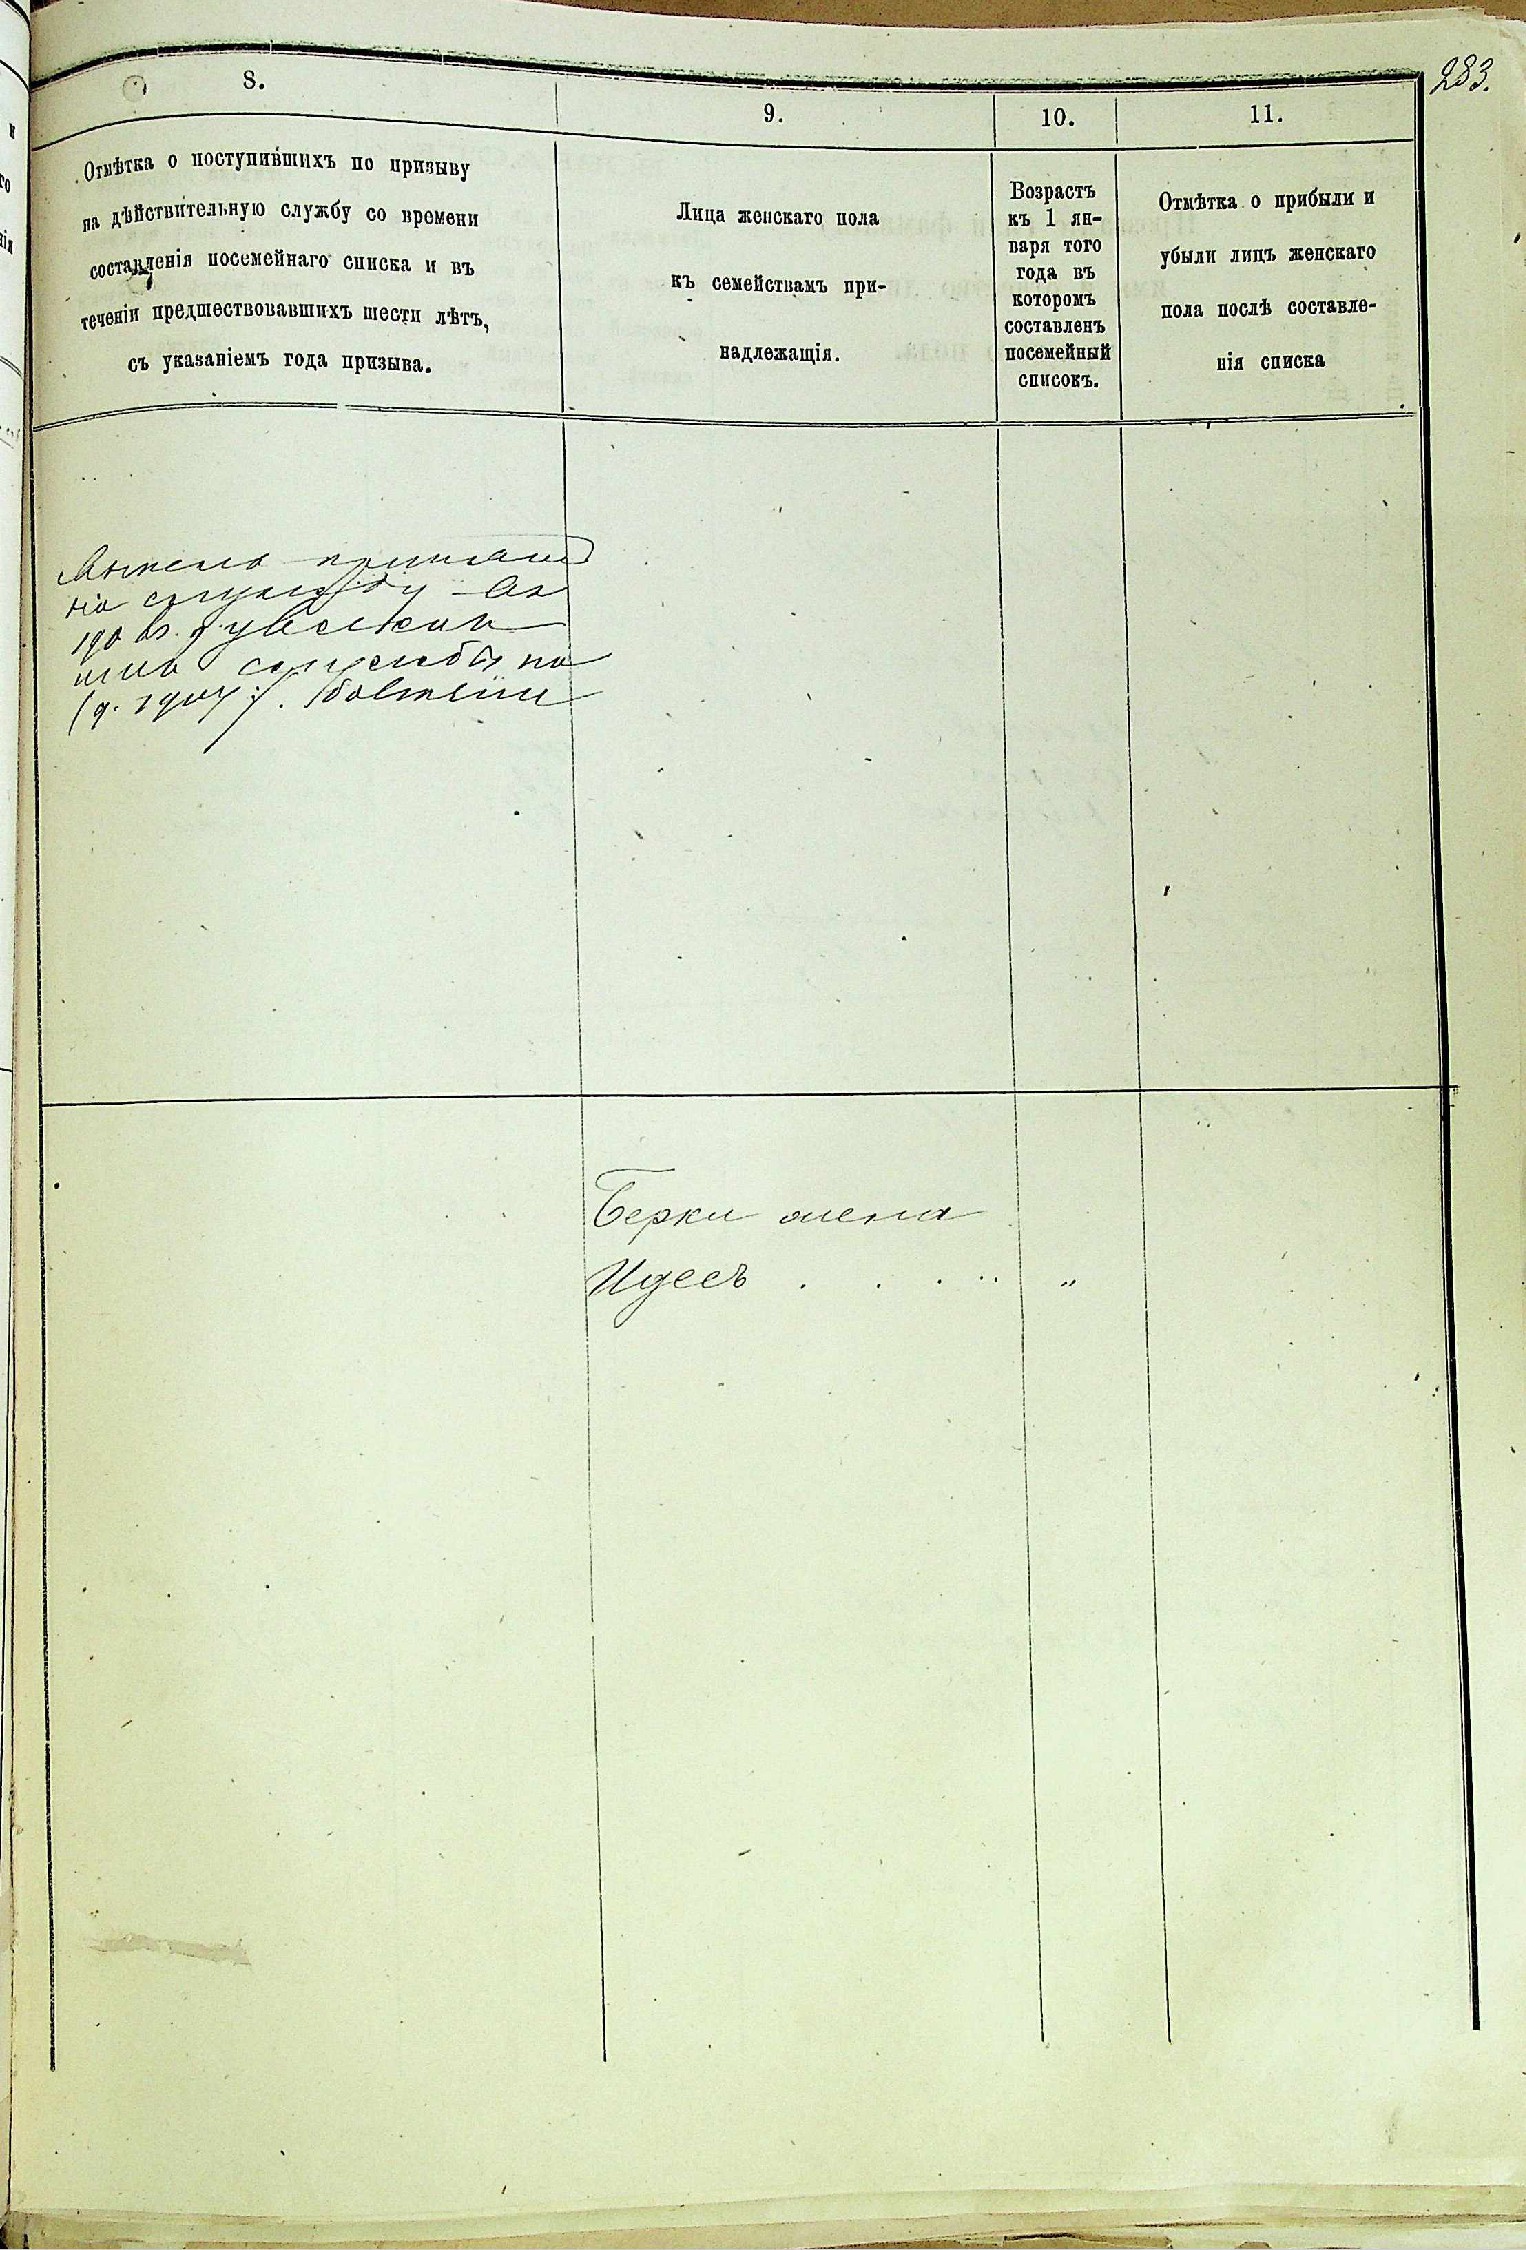 283.
8.
Отмѣтка о поступившихъ по призыву
на дѣйствительную службу со времени
составленія посемейнаго списка и въ
теченіи предшествовавшихъ шести лѣтъ,
съ указаніемъ года призыва.
9.
Лица женскаго пола
къ семействамъ при-
надлежащія.
10.
Возрастъ
къ 1 ян-
варя того
года въ
котором​ъ
составленъ
посемейный
списокъ.
11.
Отмѣтка о прибыли и
убыли лицъ женскаго
пола послѣ составле-
нія списка
на службу
службы по
Берки жена
Идесъ . . . „ „